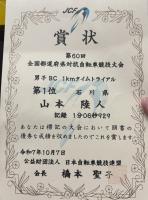 JCF
賞状
第60回
全国都道府県対抗自転車競技大会
男子BC 1kmタイムトライアル
第1位 石川県
山本 陸人
記録 1分06秒929
あなたは標記の大会において頭書の
優秀な成績を収めましたのでこれを賞します
令和7年10月7日
公益財団法人 日本自転車競技連盟
会長 橋本聖子